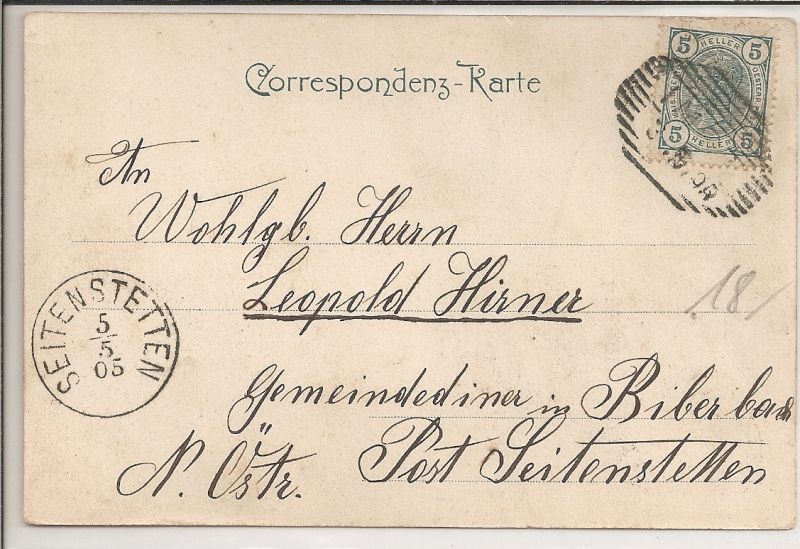 Correspondenz-Karte
5 HELLER 5
5 HELLER 5
An
Wohlgb. Herrn
Leopold Hirner
18
SEITENSTETTEN
5
5
05
Gemeindediner in Biberbach
N. Östr. Post Seitenstetten